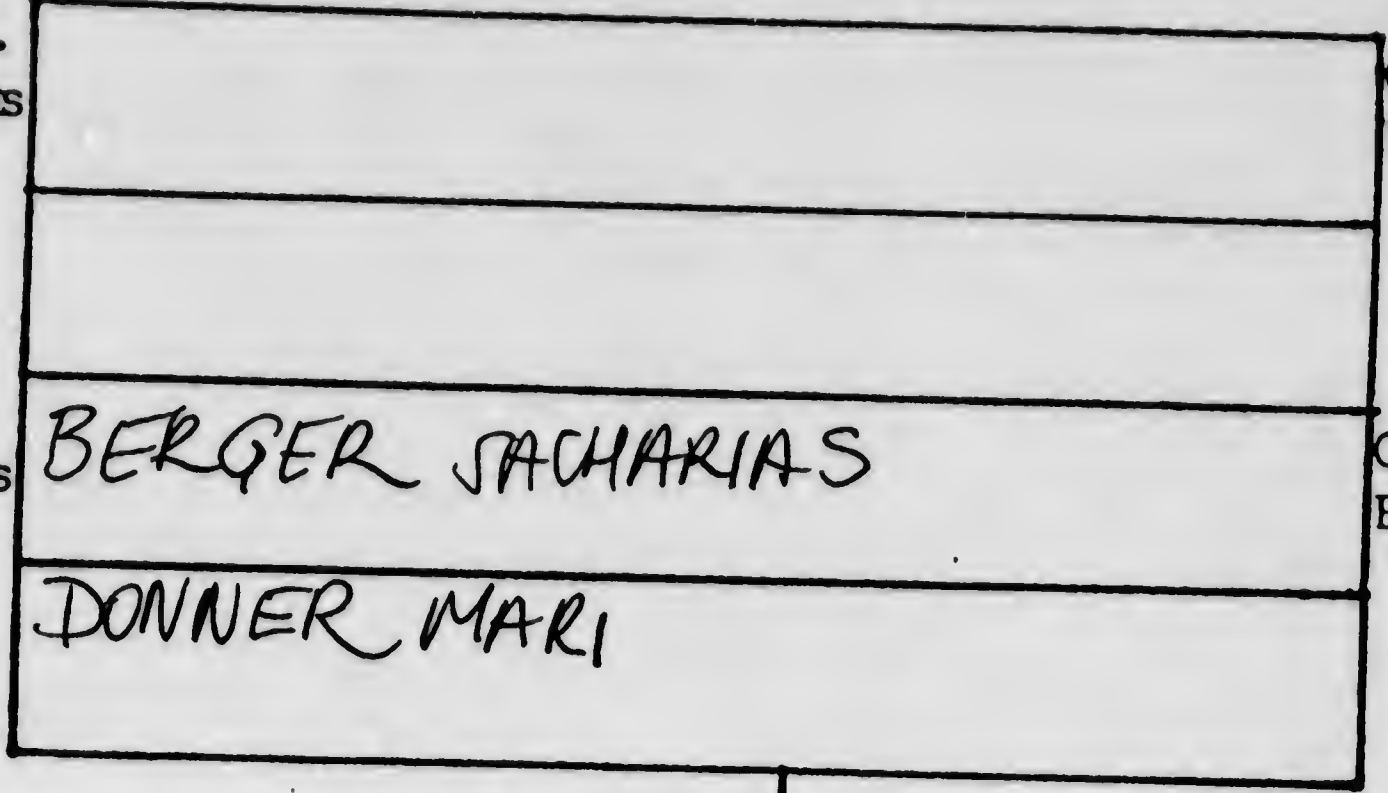 BERGER JACHARIAS
DONNER MARI